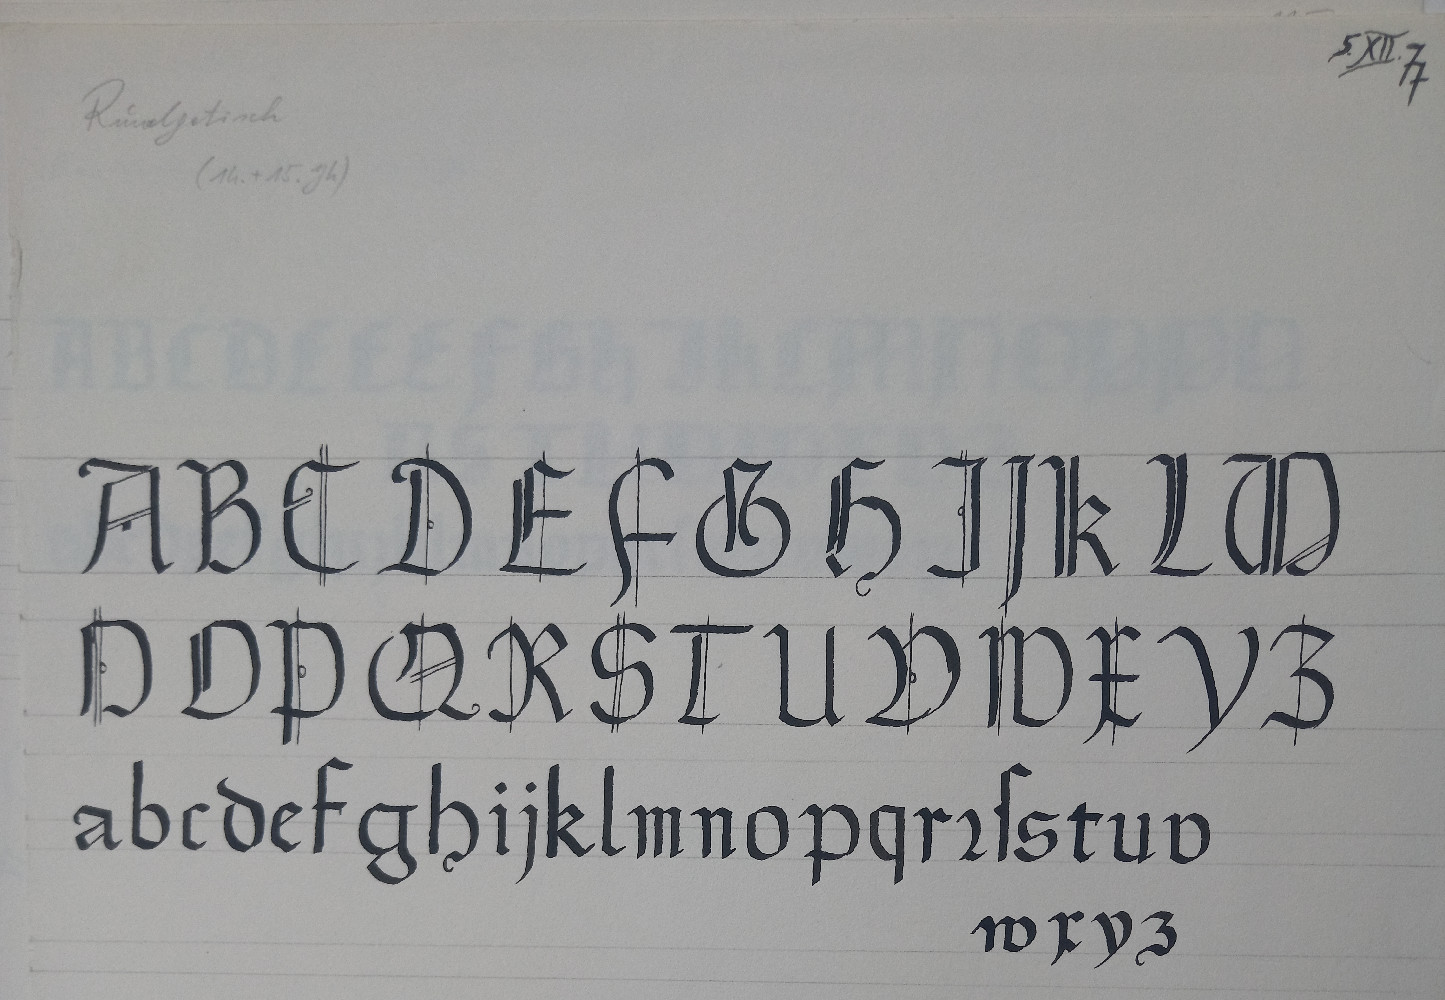 5. XII. 77
Rundgotisch
(14. + 15. Jh)
A B C D E F G H I J K L M
N O P Q R S T U V W X Y Z
a b c d e f g h i j k l m n o p q r ꝛ ſ s t u v
w x y z